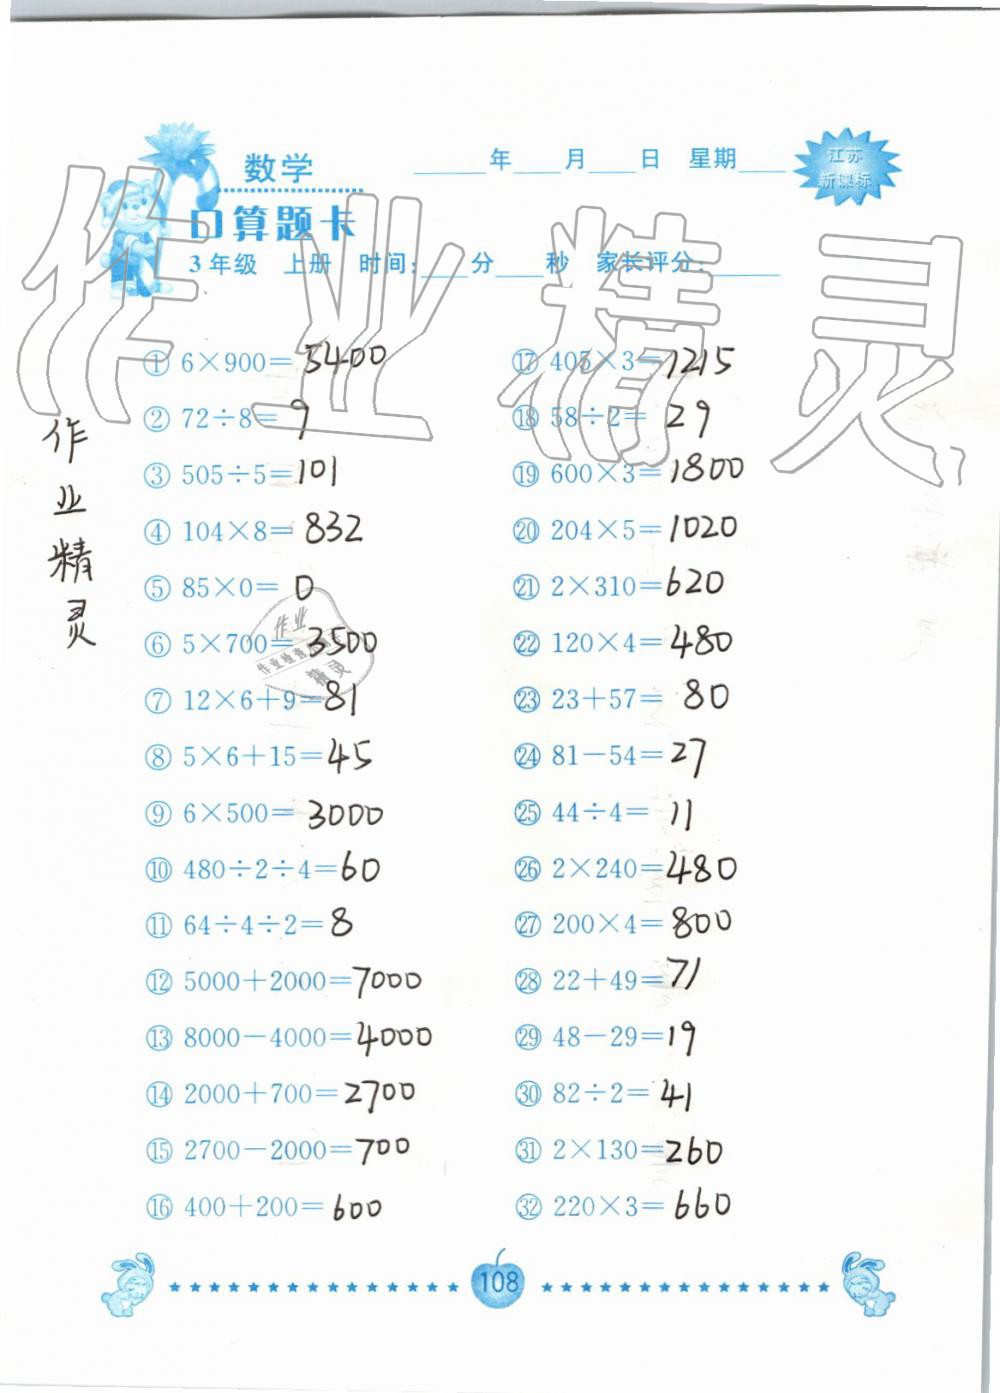 数学
口算题卡
年 月 日 星期
江苏
新课标
3年级 上册 时间: 分 秒 家长评分:
作业精灵
作业精灵
① 6×900=5400
② 72÷8=9
③ 505÷5=101
④ 104×8=832
⑤ 85×0=0
⑥ 5×700=3500
⑦ 12×6+9=81
⑧ 5×6+15=45
⑨ 6×500=3000
⑩ 480÷2÷4=60
⑪ 64÷4÷2=8
⑫ 5000+2000=7000
⑬ 8000-4000=4000
⑭ 2000+700=2700
⑮ 2700-2000=700
⑯ 400+200=600
⑰ 405×3=1215
⑱ 58÷2=29
⑲ 600×3=1800
⑳ 204×5=1020
㉑ 2×310=620
㉒ 120×4=480
㉓ 23+57=80
㉔ 81-54=27
㉕ 44÷4=11
㉖ 2×240=480
㉗ 200×4=800
㉘ 22+49=71
㉙ 48-29=19
㉚ 82÷2=41
㉛ 2×130=260
㉜ 220×3=660
作业
精灵
108